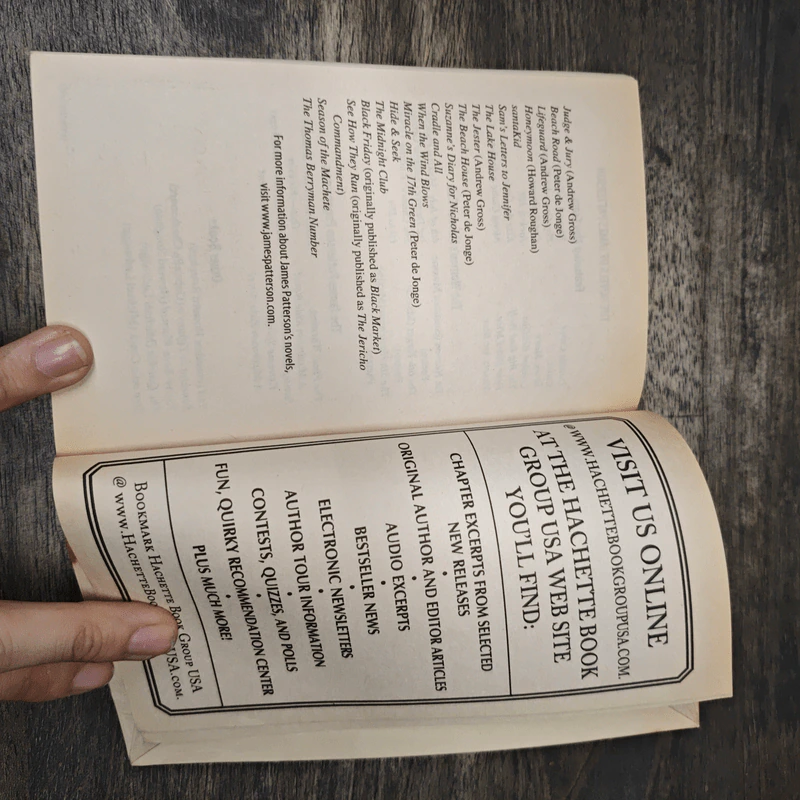 Judge & Jury (Andrew Gross)
Beach Road (Peter de Jonge)
Lifeguard (Andrew Gross)
Honeymoon (Howard Roughan)
santaKid
Sam's Letters to Jennifer
The Lake House
The Jester (Andrew Gross)
The Beach House (Peter de Jonge)
Suzanne's Diary for Nicholas
Cradle and All
When the Wind Blows
Miracle on the 17th Green (Peter de Jonge)
Hide & Seek
The Midnight Club
Black Friday (originally published as Black Market)
See How They Run (originally published as The Jericho
Commandment)
Season of the Machete
The Thomas Berryman Number
For more information about James Patterson's novels,
visit www.jamespatterson.com.
VISIT US ONLINE
@WWW.HACHETTEBOOKGROUPUSA.COM.
AT THE HACHETTE BOOK
GROUP USA WEB SITE
YOU'LL FIND:
CHAPTER EXCERPTS FROM SELECTED
NEW RELEASES
•
ORIGINAL AUTHOR AND EDITOR ARTICLES
•
AUDIO EXCERPTS
•
BESTSELLER NEWS
•
ELECTRONIC NEWSLETTERS
•
AUTHOR TOUR INFORMATION
•
CONTESTS, QUIZZES, AND POLLS
•
FUN, QUIRKY RECOMMENDATION CENTER
•
PLUS MUCH MORE!
BOOKMARK HACHETTE BOOK GROUP USA
@ WWW.HACHETTEBO USA.COM.